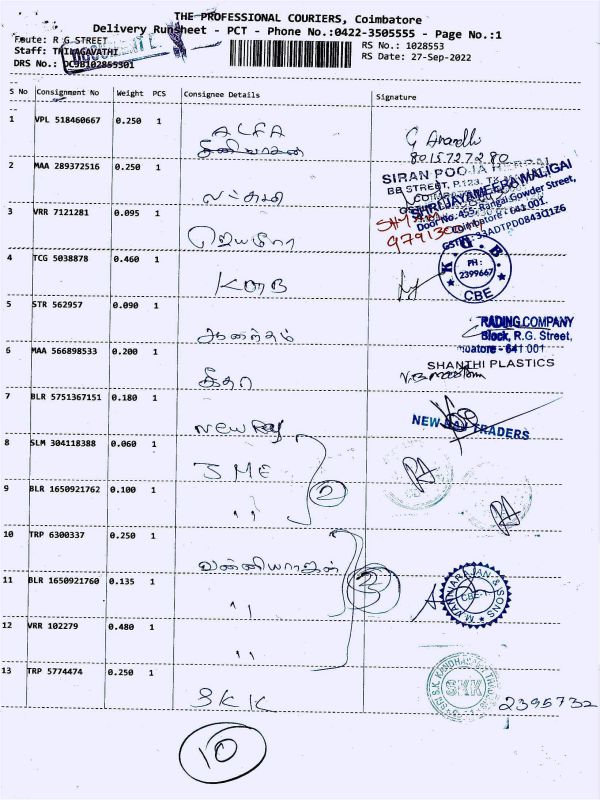 THE PROFESSIONAL COURIERS, Coimbatore
Delivery Runsheet - PCT - Phone No.:0422-3505555 - Page No.:1
Route: R G STREET
RS No.: 1028553
Staff: THILAGAVATHI
RS Date: 27-Sep-2022
DRS No.: DC9B102855301
S No Consignment No Weight PCS Consignee Details Signature
1 VPL 518460667 0.250 1 ALFA G Anandhi
8015727280
2 MAA 289372516 0.250 1
SIRAN POOJA
BB STREET, P.123,
SHRI JAYAMEERA MALIGAI
Door No. 455, Rangai Gowder Street,
Coimbatore - 641 001.
3 VRR 7121281 0.095 1
4 TCG 5038878 0.460 1 KOB
K.O.B.
PH :
2399667
CBE
5 STR 562957 0.090 1
TRADING COMPANY
Block, R.G. Street,
641 001
6 MAA 566898533 0.200 1 கீதா
SHANTHI PLASTICS
7 BLR 5751367151 0.180 1 New Raj
NEW RAJ TRADERS
8 SLM 304118388 0.060 1 JME
2
9 BLR 1650921762 0.100 1 "
10 TRP 6300337 0.250 1 வன்னியராஜன்
3
11 BLR 1650921760 0.135 1 "
M. VANNIARAJAN & SONS
CBE-1
12 VRR 102279 0.480 1 "
13 TRP 5774474 0.250 1 SKK
SKK
2395732
10